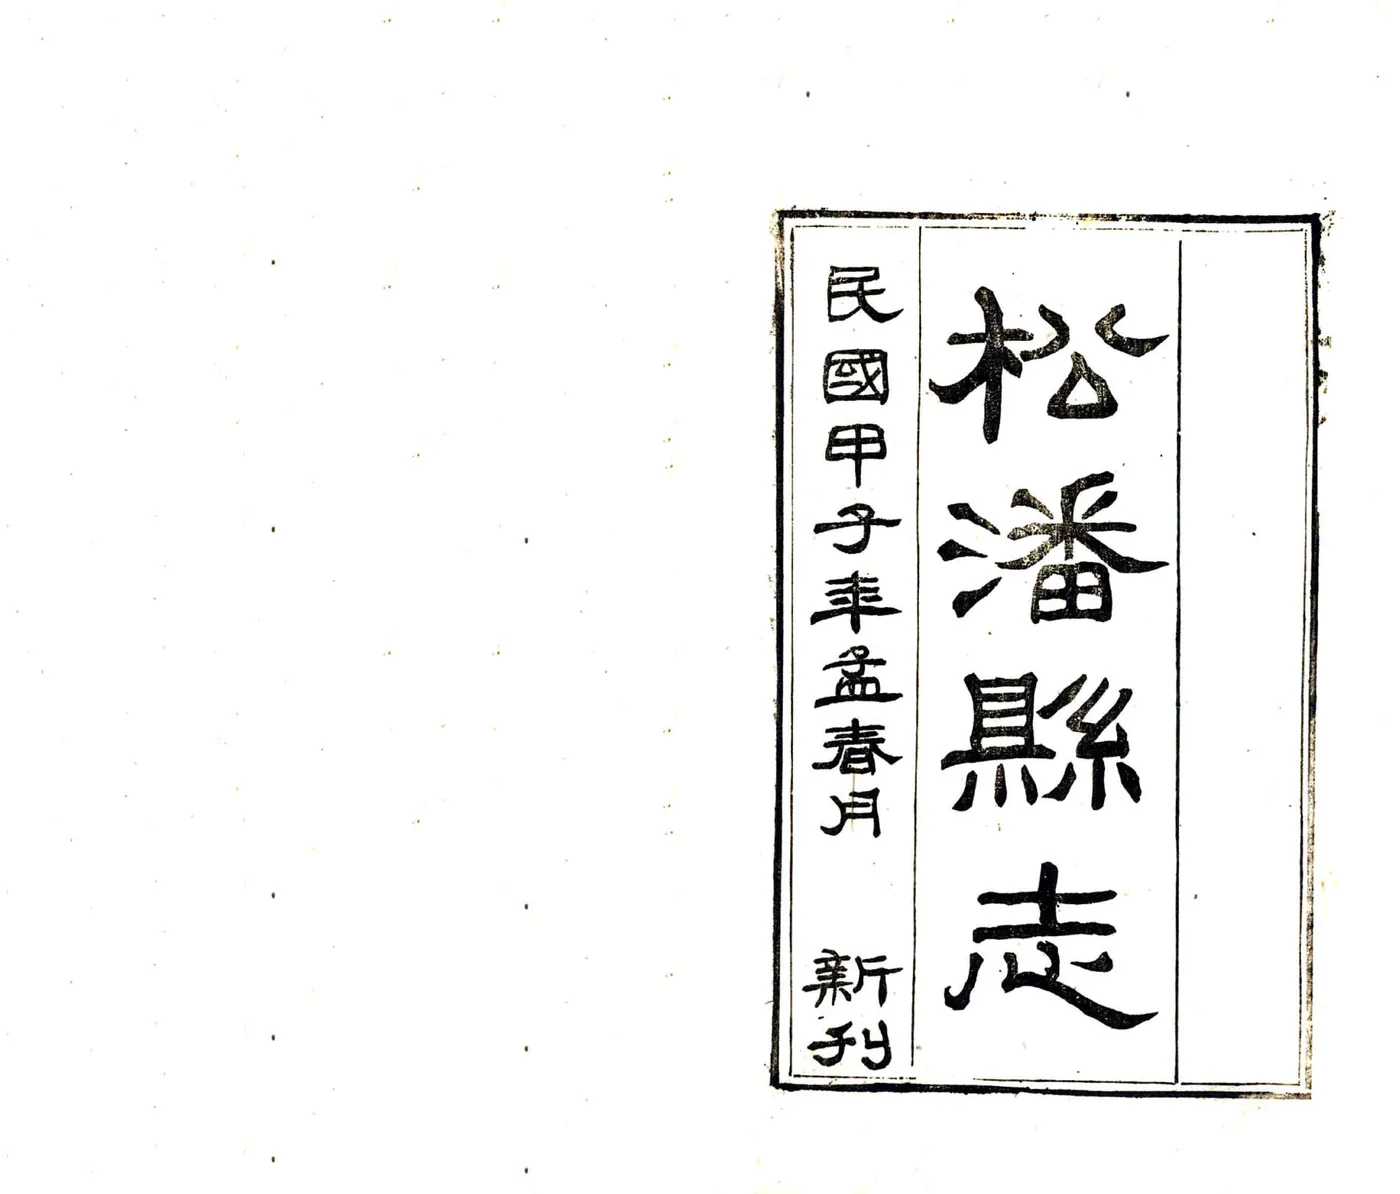 松潘縣志
民國甲子年孟春月 新刊